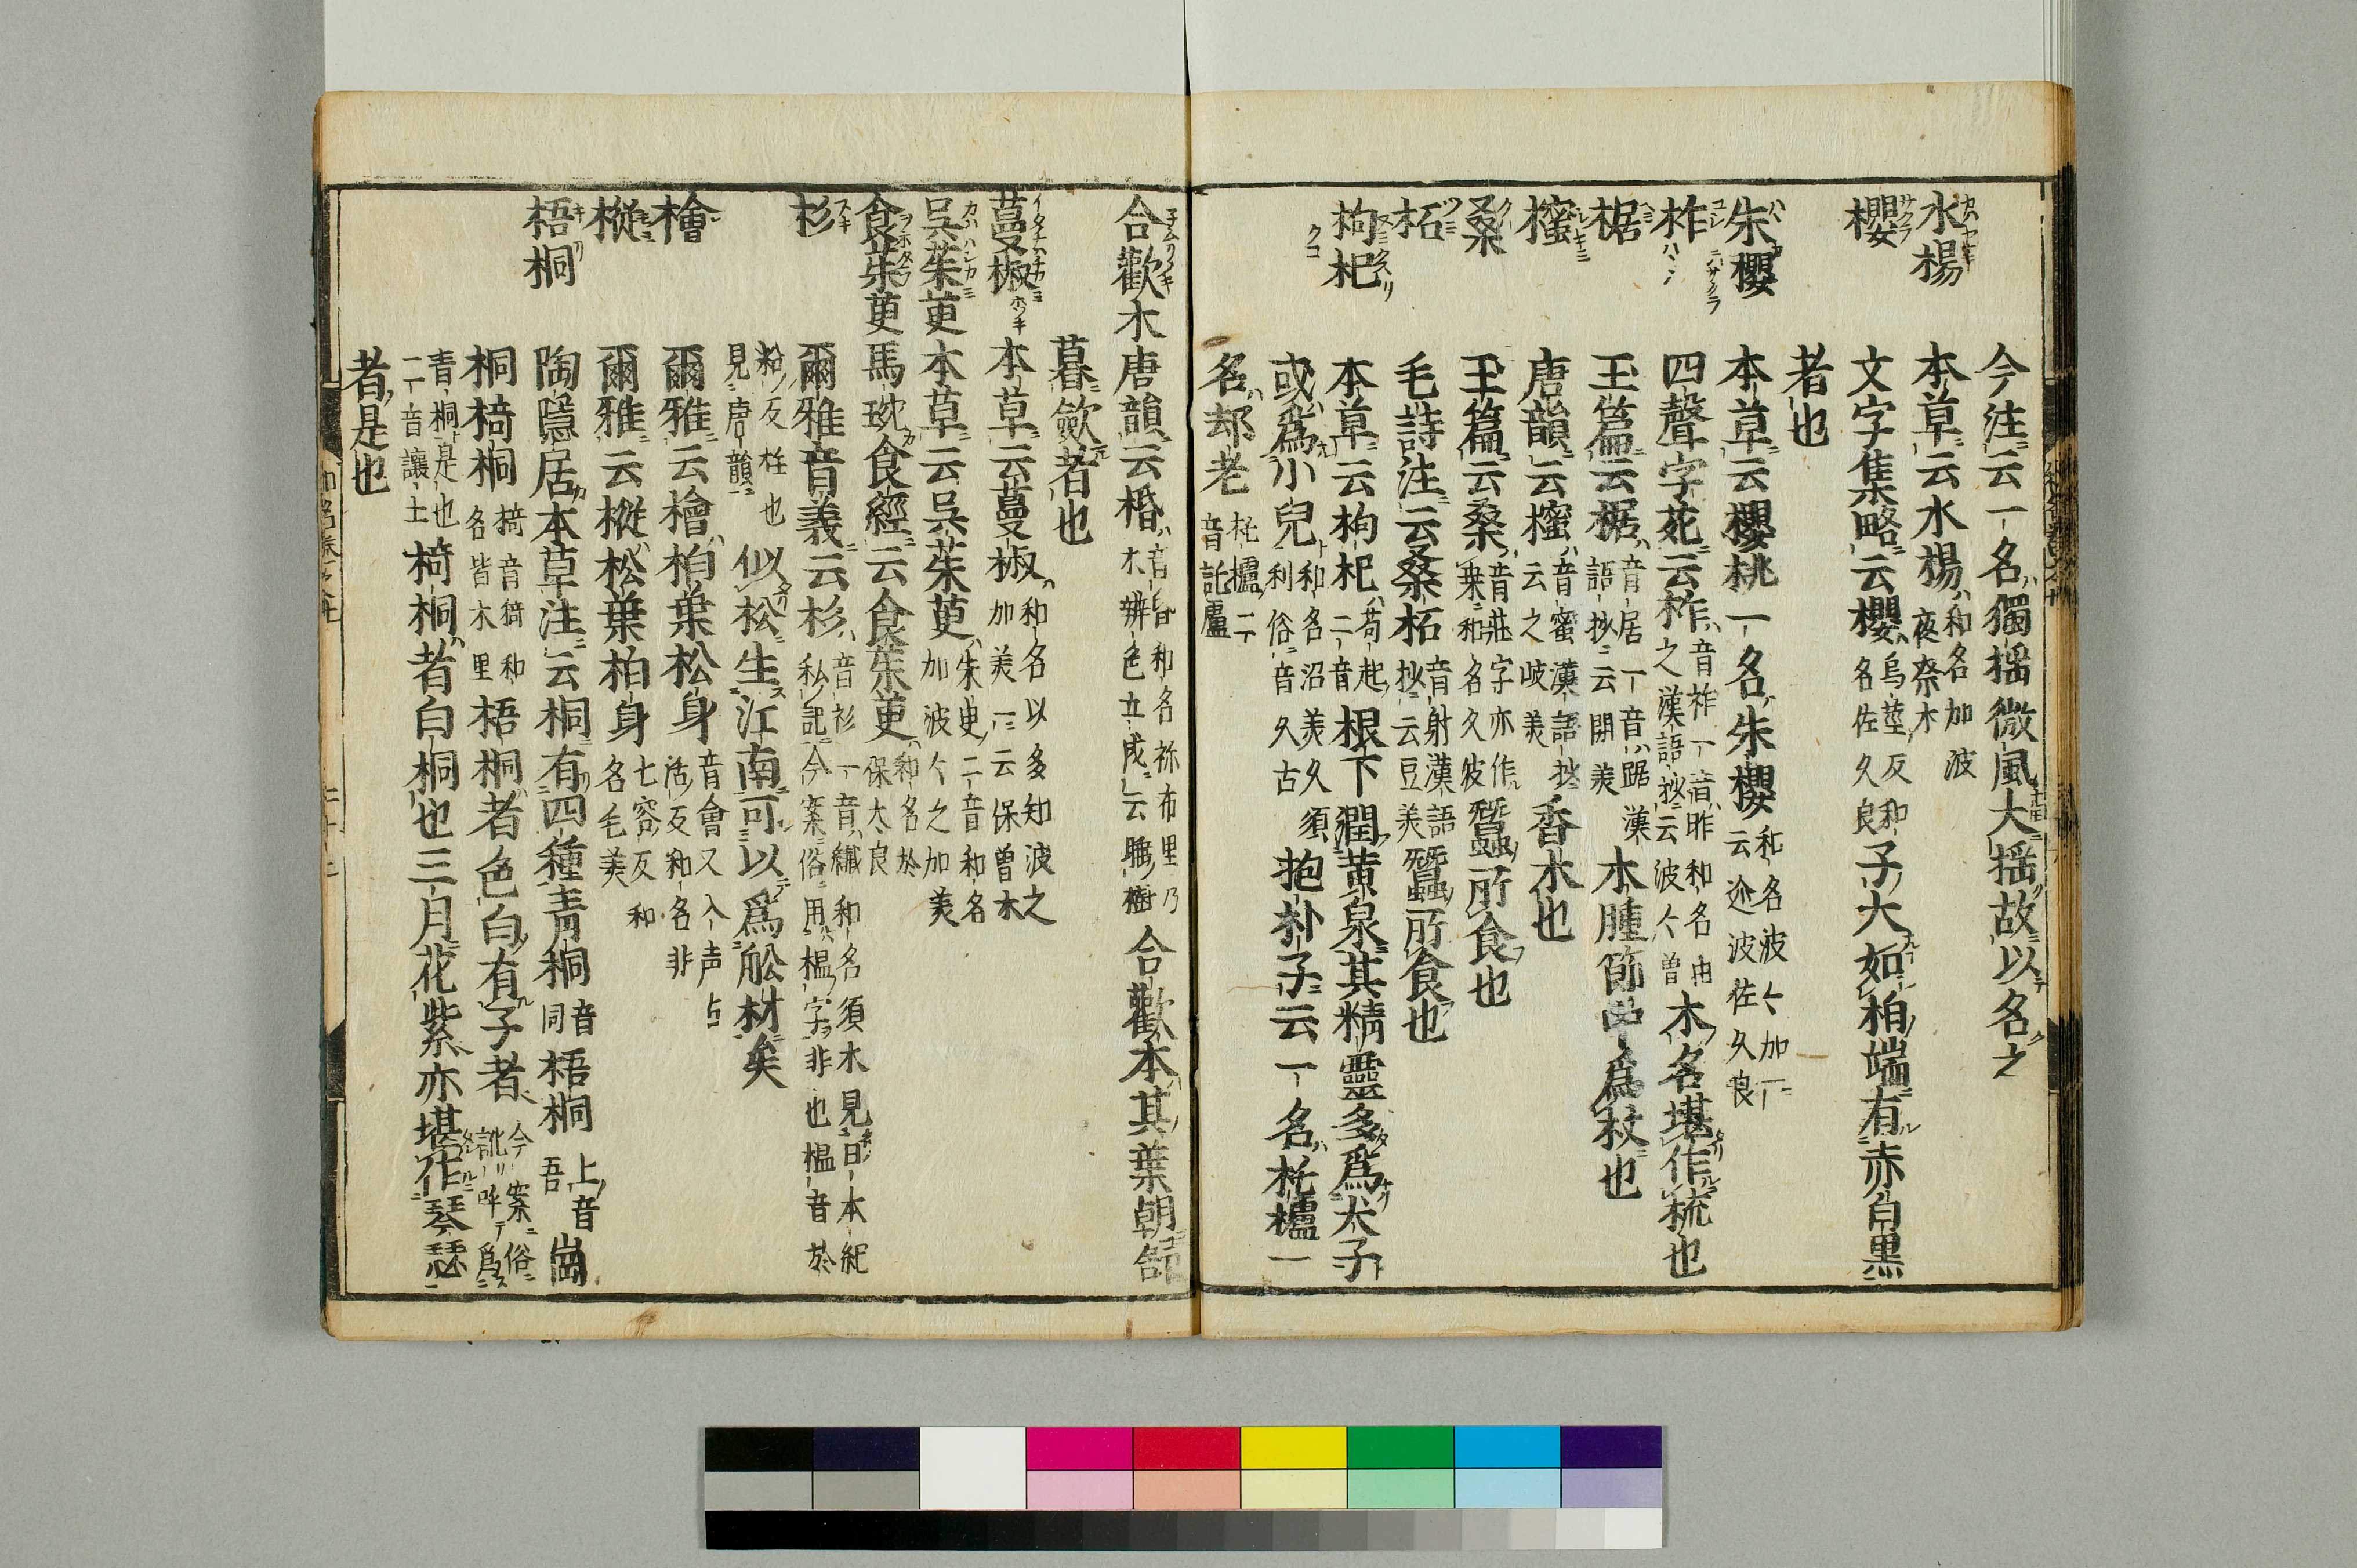 今注云一名獨揺微風大揺故以名之
水楊 本草云水楊 和名加波夜奈木
櫻 文字集略云櫻 烏莖反和名佐久良 子大如柏端有赤白黒
者也
朱櫻 本草云櫻桃一名朱櫻 和名波々加一云迩波佐久良
柞 四聲字苑云柞 音祚一音昨和名由之漢語抄云波々曽 木名堪作梳也
椐 玉篇云椐 音居一音踞漢語抄云閇美 木腫節中為杖也
櫁 唐韻云櫁 音蜜漢語抄云之岐美 香木也
桑 玉篇云桒 音莊字亦作桒和名久波 蠶所食也
柘 毛詩注云桑柘 音射漢語抄云豆美 蠶所食也
枸杞 本草云枸杞 苟起二音 根下潤黄泉其精靈多為犬子
或為小兒 和名沼美久須利俗音久古 抱朴子云一名托櫨一
名却老 托櫨二音託盧
合歡木 唐韻云棔 音昏和名祢布里乃木辨色立成云睡樹 合歡木其葉朝舒
暮歛者也
蔓椒 本草云蔓椒 和名以多知波之加美一云保曽木
呉茱萸 本草云呉茱萸 朱臾二音和名加波々之加美
食茱萸 馬琬食經云食茱萸 和名於保太良
杉 爾雅音義云杉 音衫一音纎和名須木見日本紀私記今案俗用榲字非也榲音於
粉反柱也見唐韻 似松生江南可以為舩材矣
檜 爾雅云檜柏葉松身 音會又入声古活反和名非
樅 爾雅云樅松葉柏身 七容反和名毛美
梧桐 陶隱居本草注云桐有四種青桐 音同 梧桐 上音吾 崗
桐椅桐 椅音猗和名皆木里 梧桐者色白有子者 今案俗訛呼為
青桐是也二音讓土 椅桐者白桐也三月花紫亦堪作琴瑟
者是也